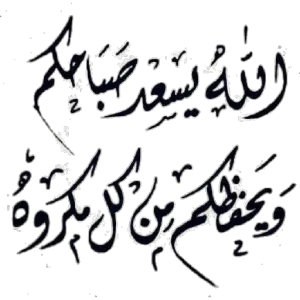 الله يسعد صباحكم
ويحفظكم من كل مكروه